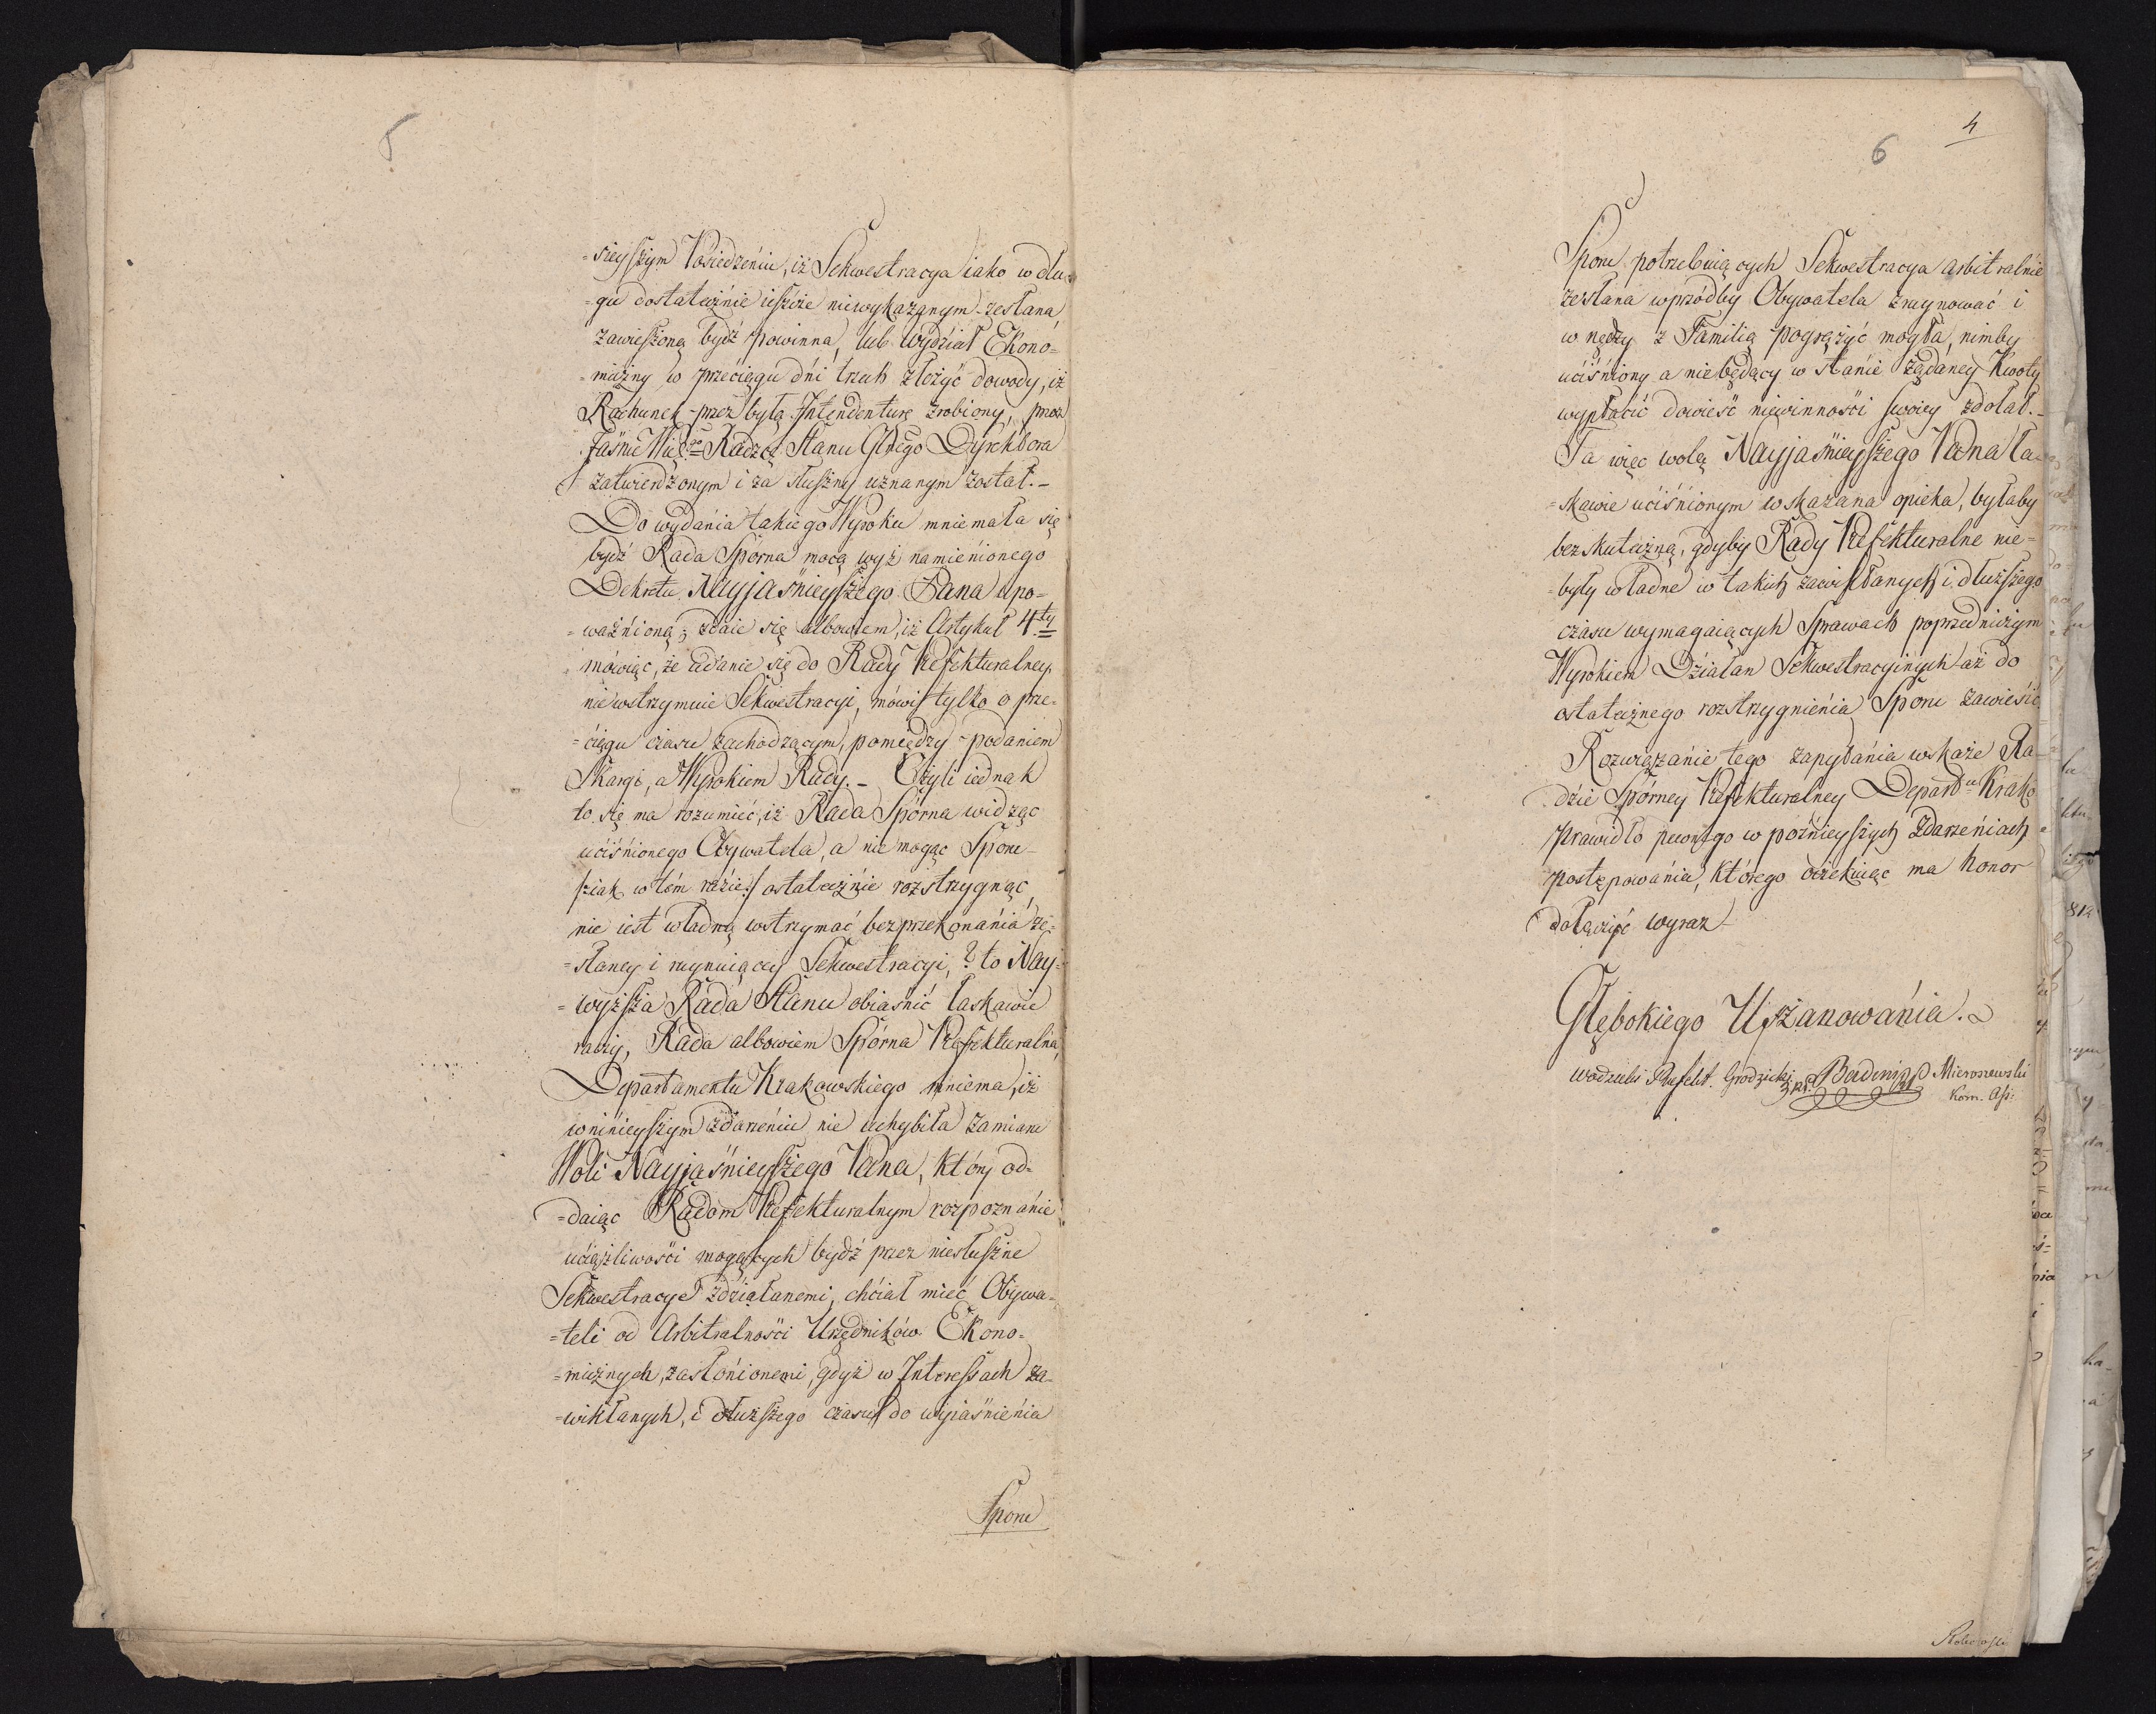 5
=sieyszym Posiedzeniu, iż Sekwestracya iako w dłu=
=gu dostatecznie ieszcze niewykazanym zesłana,
zawieszoną bydź powinna, lub Wydział Ekono=
=miczny w przeciągu dni trzech złożyć dowody, iż
Rachunek przez byłą Intendenturę zrobiony, przez
Radzcę Stanu Dyrektora
zatwierdzonym i za słuszny uznanym został.–
Do wydania takiego Wyroku mniemała się
bydź Rada Spórna mocą wyż namienionego
Dekretu Nayjaśnieyszego Pana upo=
=ważnioną; zdaie się albowiem, iż Artykuł 4ty
mówiąc, że udanie się do Rady Prefekturalney,
nie wstrzymuie Sekwestracyi, mówi tylko o prze=
=ciągu czasu zachodzącym, pomiędzy podaniem
Skargi, a Wyrokiem Rady.– Czyli iednak
to się ma rozumieć, iż Rada Spórna widząc
uciśnionego Obywatela, a nie mogąc Sporu
/:iak w tém razie:/ ostatecznie rozstrzygnąć,
nie iest władną wstrzymać bez przekonania ze=
=słaney i ruynuiącey Sekwestracyi,? to Nay=
=wyższa Rada Stanu obiaśnić łaskawie
raczy, Rada albowiem Spórna Prefekturalna
Departamentu Krakowskiego mniema, iż
w ninieyszym zdarzeniu nie uchybiła zamiaru
Woli Nayjaśnieyszego Pana, który od=
=daiąc Radom Prefekturalnym rozpoznanie
uciążliwości mogących bydź przez niesłuszne
Sekwestracye zdziałanemi, chciał mieć Obywa=
=teli od Arbitralności Urzędników Ekono=
=micznych, zasłonionemi, gdyż w Interessach za=
=wikłanych, i dłuższego czasu do wyiaśnienia
Sporu
4
6
Sporu potrzebuiących Sekwestracya arbitralnie
zesłana wprzódby Obywatela zruynować i
w nędzy z Familią pogrążyć mogła, nimby
uciśniony a niebędący w stanie żądaney Kwoty
wypłacić dowieść niewinności swoiey zdołał.–
Ta więc wolą Nayjaśnieyszego Pana ła=
=skawie uciśnionym wskazana opieka, byłaby
bezskuteczną, gdyby Rady Prefekturalne nie=
=były władne w takich zawikłanych i dłuższego
czasu wymagaiących Sprawach poprzedniczym
Wyrokiem Działań Sekwestracyinych aż do
ostatecznego rozstrzygnienia Sporu zawiesić
Rozwiązanie tego zapytania wskaże Ra=
dzie Spórney Prefekturalney Departu Krako
prawidło pewnego w poźnieyszych zdarzeniach
postępowania, którego oczekuiąc ma honor
dołączyć wyraz
Głębokiego Uszanowania.
Wodzicki Prefekt. Grodzicki Mieroszewski
Kom. Ass: